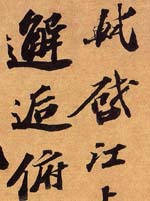 軾啓江上
邂逅俯